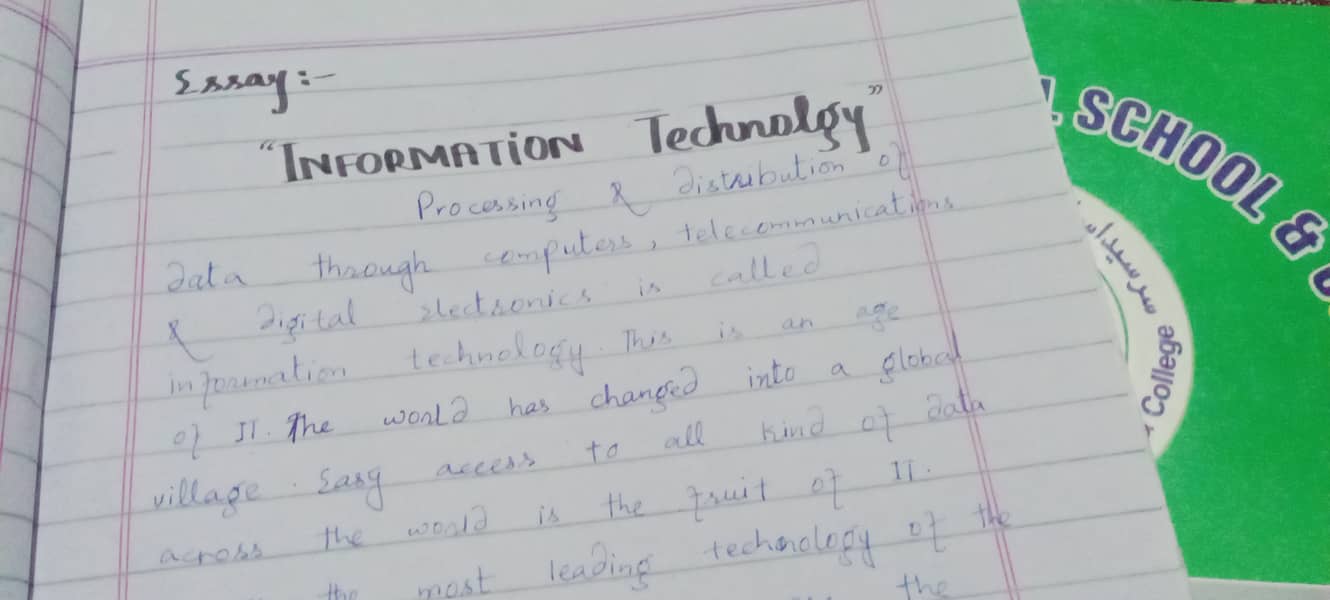 Essay:-
"INFORMATION Technolgy"
Processing & distribution of
data through computers, telecommunications
& digital electronics is called
information technology. This is an age
of IT. The world has changed into a global
village. Easy access to all kind of data
across the world is the fruit of IT.
the most leading technology of the
the
SCHOOL &
سرسید
College